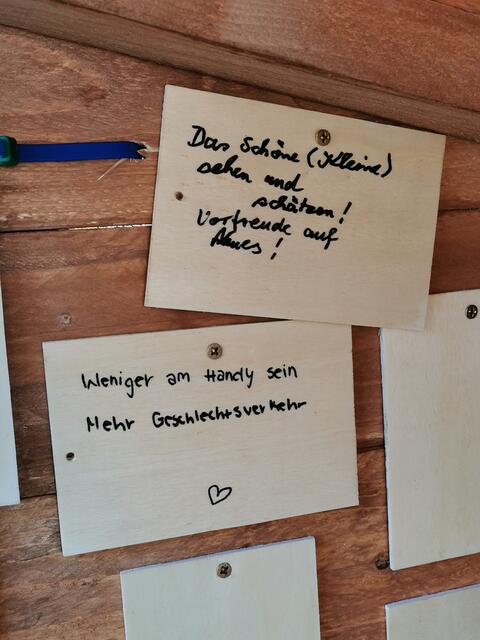 Das Schöne (Kleine)
sehen und
schätzen!
Vorfreude auf
!
Weniger am Handy sein
Mehr Geschlechtsverkehr
♡